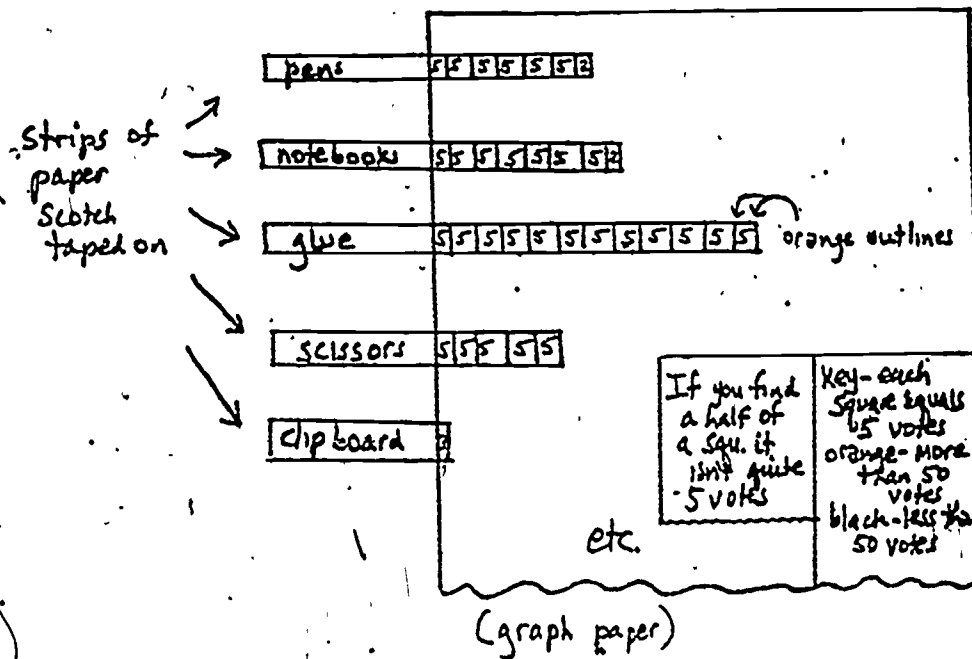 pens 5 5 5 5 5 5 2
Strips of
paper
Scotch
taped on
notebooks 5 5 5 5 5 5 5 2
glue 5 5 5 5 5 5 5 5 5 5 5
orange outlines
scissors 5 5 5 5 5
clipboard
If you find
a half of
a squ. it
isn't quite
5 votes
Key-each
square equals
5 votes
orange-more
than 50
votes
black-less tha
50 votes
etc.
(graph paper)